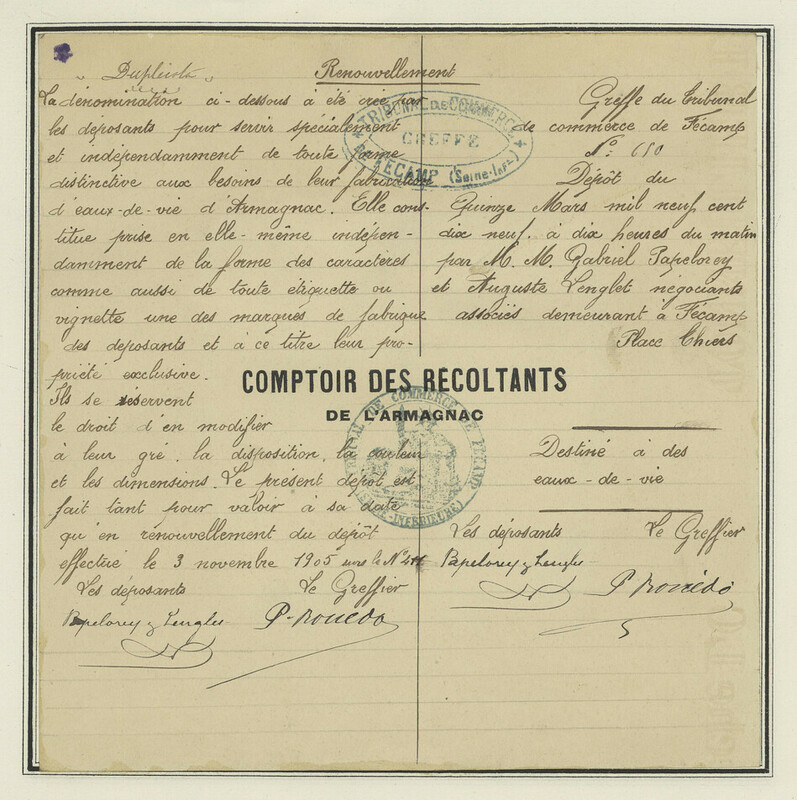 " Duplicata "
Renouvellement
La dénomination ci-dessous a été créée par
les déposants pour servir spécialement
et indépendamment de toute forme
distinctive aux besoins de leur fabrication
d'eaux-de-vie d'Armagnac. Elle cons-
titue prise en elle-même indépen-
damment de la forme des caractères
comme aussi de toute étiquette ou
vignette une des marques de fabrique
des déposants et à ce titre leur pro-
priété exclusive.
Ils se réservent
le droit d'en modifier
à leur gré, la disposition, la couleur
et les dimensions. Le présent dépôt est
fait tant pour valoir à sa date
qu'en renouvellement du dépôt
effectué le 3 novembre 1905 sous le N°
Les déposants Le Greffier
Papelorey & Lenglet P. Bonédo
TRIBUNAL DE COMMERCE
GREFFE
DE FÉCAMP (Seine-Infre)
Greffe du Tribunal
de commerce de Fécamp
N° 650
Dépôt du
Quinze Mars mil neuf cent
dix neuf à dix heures du matin
par M. M. Gabriel Papelorey
et Auguste Lenglet négociants
associés demeurant à Fécamp
Place Thiers
COMPTOIR DES RÉCOLTANTS
DE L'ARMAGNAC
TRIBUNAL DE COMMERCE DE FÉCAMP
(SEINE-INFÉRIEURE)
Destiné à des
eaux-de-vie
Les déposants Le Greffier
Papelorey & Lenglet P. Bonédo